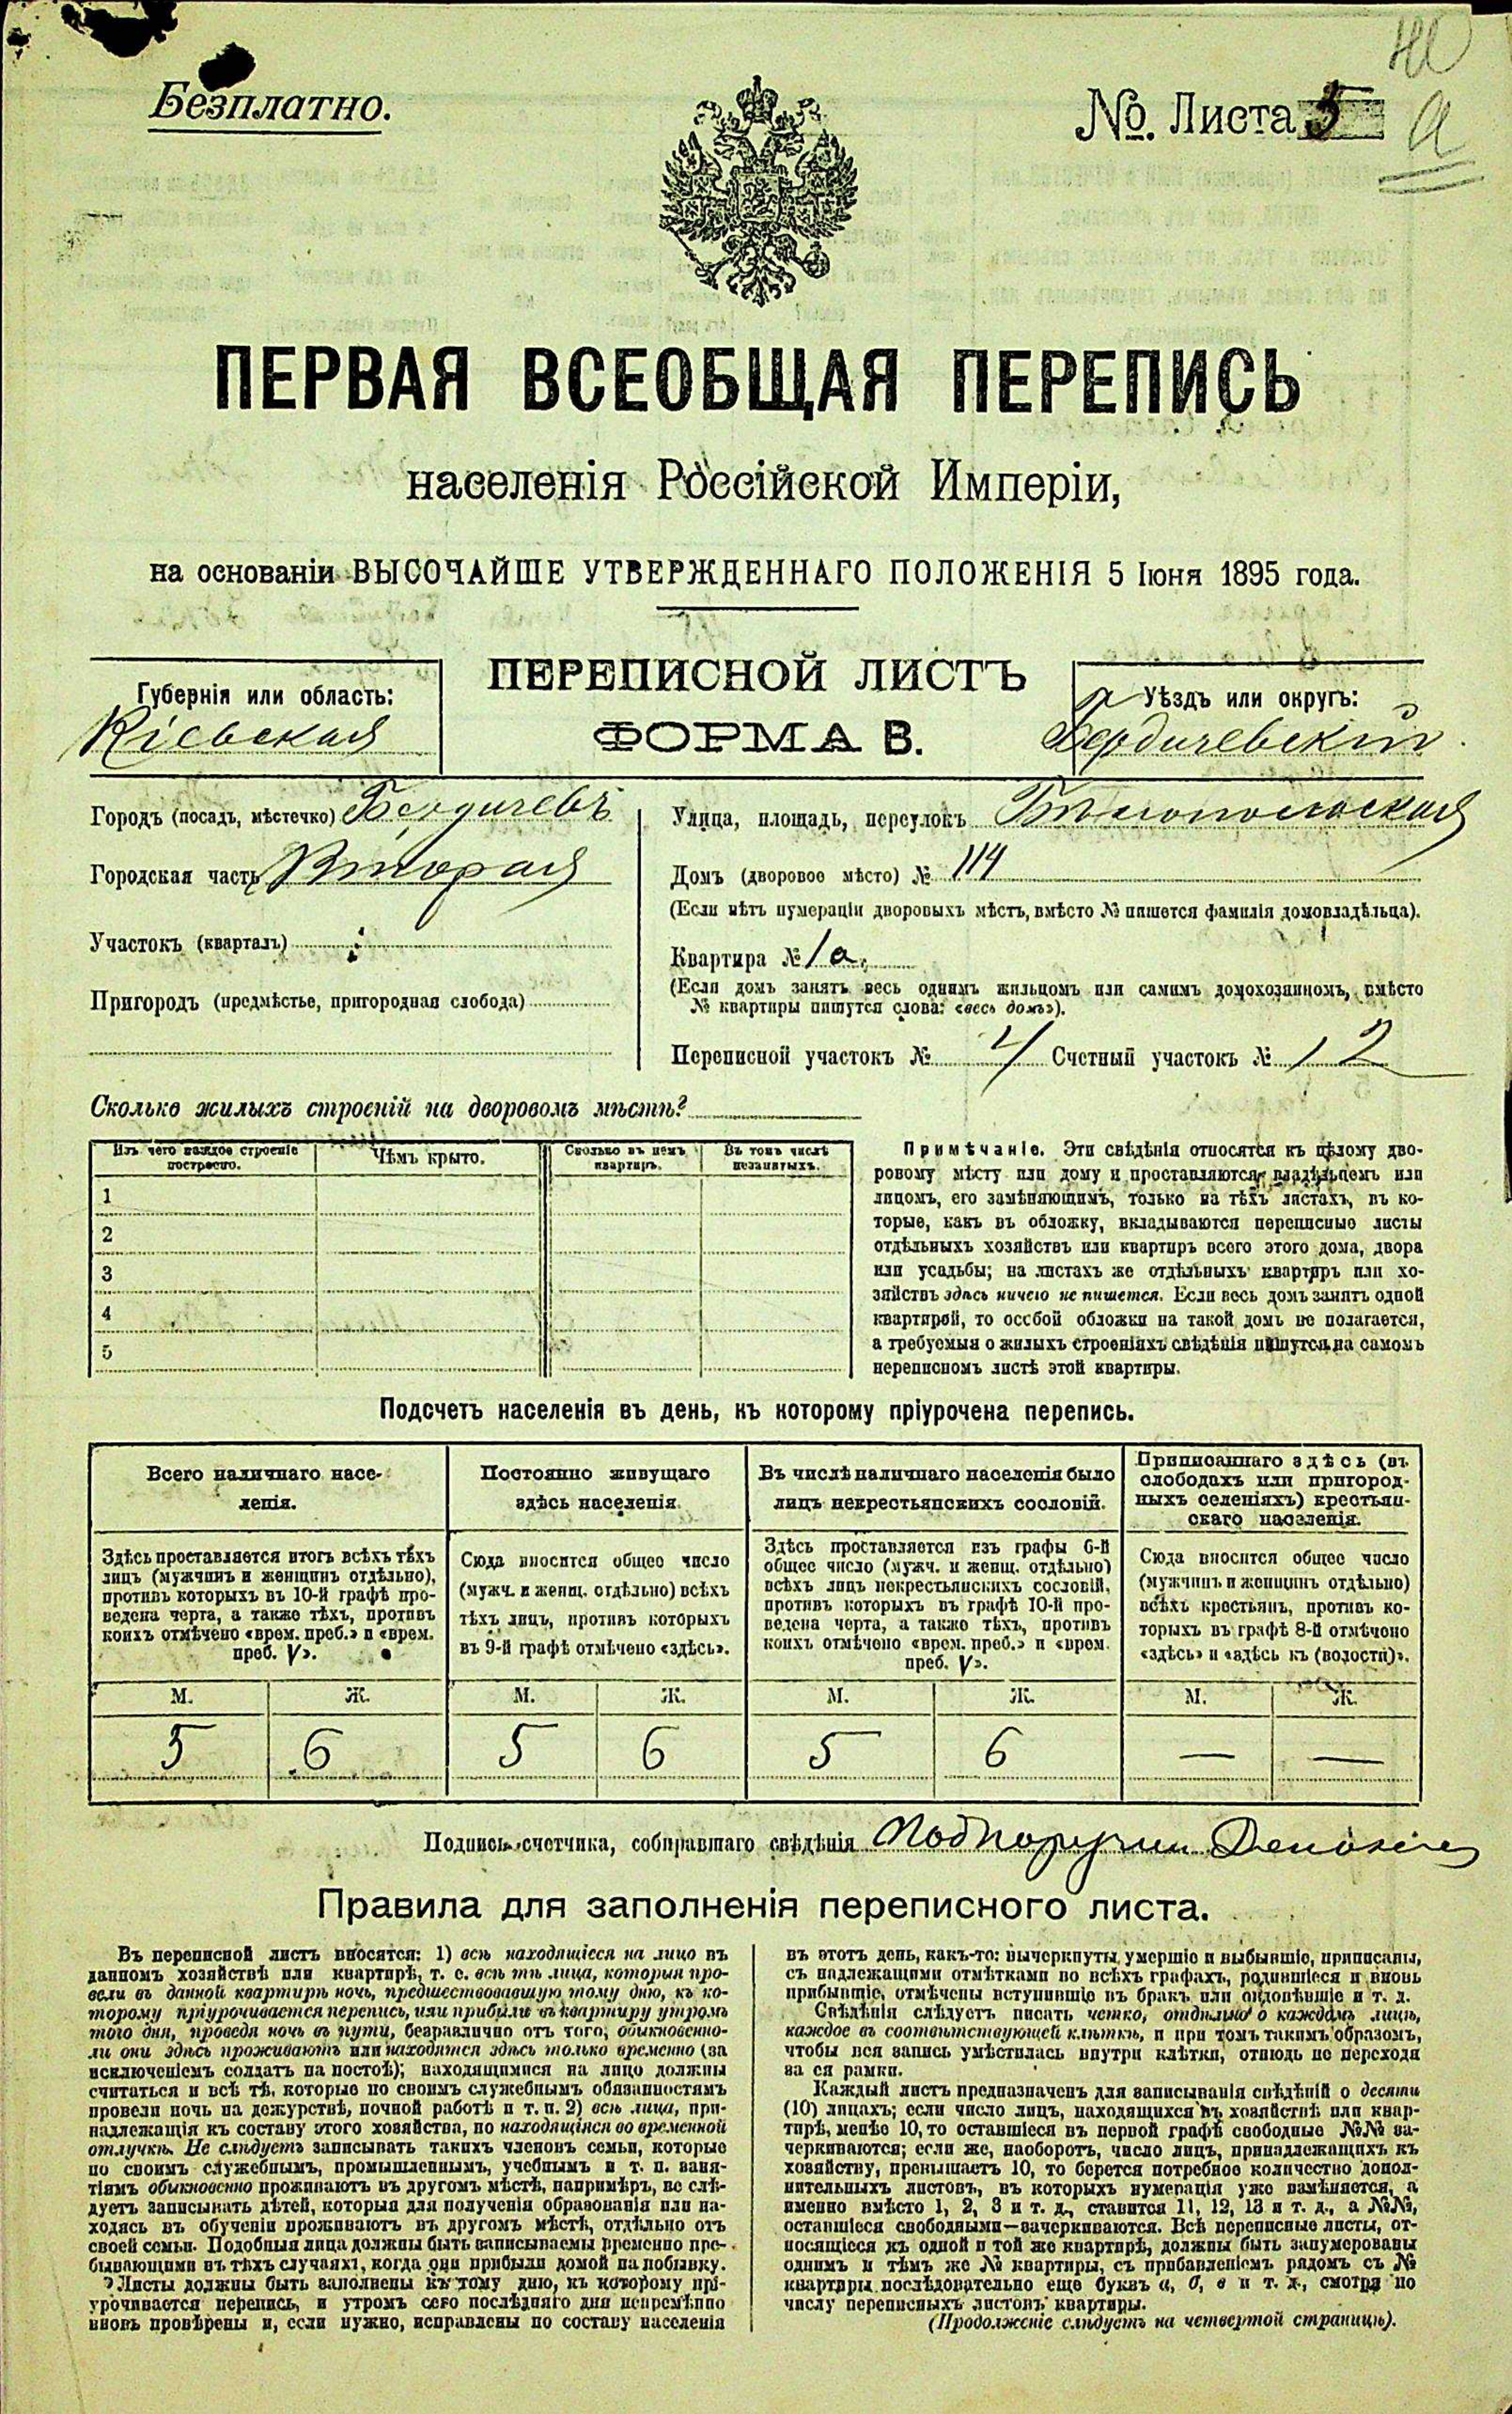 Безплатно.
№. Листа 5
ПЕРВАЯ ВСЕОБЩАЯ ПЕРЕПИСЬ
населенія Россійской Имперіи,
на основаніи ВЫСОЧАЙШЕ УТВЕРЖДЕННАГО ПОЛОЖЕНІЯ 5 Іюня 1895 года.
ПЕРЕПИСНОЙ ЛИСТЪ
ФОРМА В.
Губернія или область:
Кіевская
Уѣздъ или округъ:
Бердичевскій
Городъ (посадъ, мѣстечко) Бердичевъ
Городская часть Вторая
Участокъ (кварталъ)
Пригородъ (предмѣстье, пригородная слобода)
Улица, площадь, переулокъ Бѣлопольская
Домъ (дворовое мѣсто) № 114
(Если нѣтъ нумераціи дворовыхъ мѣстъ, вмѣсто № пишется фамилія домовладѣльца).
Квартира № 1а
(Если домъ занятъ весь однимъ жильцомъ или самимъ домохозяиномъ, вмѣсто
№ квартиры пишутся слова: «весь домъ»).
Переписной участокъ № 4 Счетный участокъ № 12
Сколько жилыхъ строеній на дворовомъ мѣстѣ?
Изъ чего каждое строеніе
построено.
Чѣмъ крыто.
Сколько въ немъ
квартиръ.
Въ томъ числѣ
незанятыхъ.
1
2
3
4
5
Примѣчаніе. Эти свѣдѣнія относятся къ цѣлому дво-
ровому мѣсту или дому и проставляются владѣльцемъ или
лицомъ, его замѣняющимъ, только на тѣхъ листахъ, въ ко-
торые, какъ въ обложку, вкладываются переписные листы
отдѣльныхъ хозяйствъ или квартиръ всего этого дома, двора
или усадьбы; на листахъ же отдѣльныхъ квартиръ или хо-
зяйствъ здѣсь ничего не пишется. Если весь домъ занятъ одной
квартирой, то особой обложки на такой домъ не полагается,
а требуемыя о жилыхъ строеніяхъ свѣдѣнія пишутся на самомъ
переписномъ листѣ этой квартиры.
Подсчетъ населенія въ день, къ которому пріурочена перепись.
Всего наличнаго насе-
ленія.
Здѣсь проставляется итогъ всѣхъ тѣхъ
лицъ (мужчинъ и женщинъ отдѣльно),
противъ которыхъ въ 10-й графѣ про-
ведена черта, а также тѣхъ, противъ
коихъ отмѣчено «врем. преб.» и «врем.
преб. V».
Постоянно живущаго
здѣсь населенія.
Сюда вносится общее число
(мужч. и женщ. отдѣльно) всѣхъ
тѣхъ лицъ, противъ которыхъ
въ 9-й графѣ отмѣчено «здѣсь».
Въ числѣ наличнаго населенія было
лицъ некрестьянскихъ сословій.
Здѣсь проставляется изъ графы 6-й
общее число (мужч. и женщ. отдѣльно)
всѣхъ лицъ некрестьянскихъ сословій,
противъ которыхъ въ графѣ 10-й про-
ведена черта, а также тѣхъ, противъ
коихъ отмѣчено «врем. преб.» и «врем.
преб. V».
Приписаннаго здѣсь (въ
слободахъ или пригород-
ныхъ селеніяхъ) крестьян-
скаго населенія.
Сюда вносится общее число
(мужчинъ и женщинъ отдѣльно)
всѣхъ крестьянъ, противъ ко-
торыхъ въ графѣ 8-й отмѣчено
«здѣсь» и «здѣсь къ (волости)».
М. Ж. М. Ж. М. Ж. М. Ж.
5 6 5 6 5 6 — —
Подпись счетчика, собиравшаго свѣдѣнія
Правила для заполненія переписного листа.
Въ переписной листъ вносятся: 1) всѣ находящіеся на лицо въ
данномъ хозяйствѣ или квартирѣ, т. е. всѣ тѣ лица, которыя про-
вели въ данной квартирѣ ночь, предшествовавшую тому дню, къ ко-
торому пріурочивается перепись, или прибыли въ квартиру утромъ
того дня, проведя ночь въ пути, безразлично отъ того, обыкновенно-
ли они здѣсь проживаютъ или находятся здѣсь только временно (за
исключеніемъ солдатъ на постоѣ); находящимися на лицо должны
считаться и всѣ тѣ, которые по своимъ служебнымъ обязанностямъ
провели ночь на дежурствѣ, ночной работѣ и т. п. 2) всѣ лица, при-
надлежащія къ составу этого хозяйства, но находящіяся во временной
отлучкѣ. Не слѣдуетъ записывать такихъ членовъ семьи, которые
по своимъ служебнымъ, промышленнымъ, учебнымъ и т. п. заня-
тіямъ обыкновенно проживаютъ въ другомъ мѣстѣ, напримѣръ, не слѣ-
дуетъ записывать дѣтей, которыя для полученія образованія или на-
ходясь въ обученіи проживаютъ въ другомъ мѣстѣ, отдѣльно отъ
своей семьи. Подобныя лица должны быть записываемы временно пре-
бывающими въ тѣхъ случаяхъ, когда они прибыли домой на побывку.
Листы должны быть заполнены къ тому дню, къ которому прі-
урочивается перепись, и утромъ сего послѣдняго дня непремѣнно
вновь провѣрены и, если нужно, исправлены по составу населенія
въ этотъ день, какъ-то: вычеркнуты умершіе и выбывшіе, приписаны,
съ надлежащими отмѣтками во всѣхъ графахъ, родившіеся и вновь
прибывшіе, отмѣчены вступившіе въ бракъ или овдовѣвшіе и т. д.
Свѣдѣнія слѣдуетъ писать четко, отдѣльно о каждомъ лицѣ,
каждое въ соотвѣтствующей клѣткѣ, и при томъ такимъ образомъ,
чтобы вся запись умѣстилась внутри клѣтки, отнюдь не переходя
за ея рамки.
Каждый листъ предназначенъ для записыванія свѣдѣній о десяти
(10) лицахъ; если число лицъ, находящихся въ хозяйствѣ или квар-
тирѣ, менѣе 10, то оставшіеся въ первой графѣ свободные №№ за-
черкиваются; если же, наоборотъ, число лицъ, принадлежащихъ къ
хозяйству, превышаетъ 10, то берется потребное количество допол-
нительныхъ листовъ, въ которыхъ нумерація уже измѣняется, а
именно вмѣсто 1, 2, 3 и т. д., ставится 11, 12, 13 и т. д., а №№,
оставшіеся свободными—зачеркиваются. Всѣ переписные листы, от-
носящіеся къ одной и той же квартирѣ, должны быть занумерованы
однимъ и тѣмъ же № квартиры, съ прибавленіемъ рядомъ съ №
квартиры послѣдовательно еще буквъ а, б, в и т. д., смотря по
числу переписныхъ листовъ квартиры.
(Продолженіе слѣдуетъ на четвертой страницѣ).